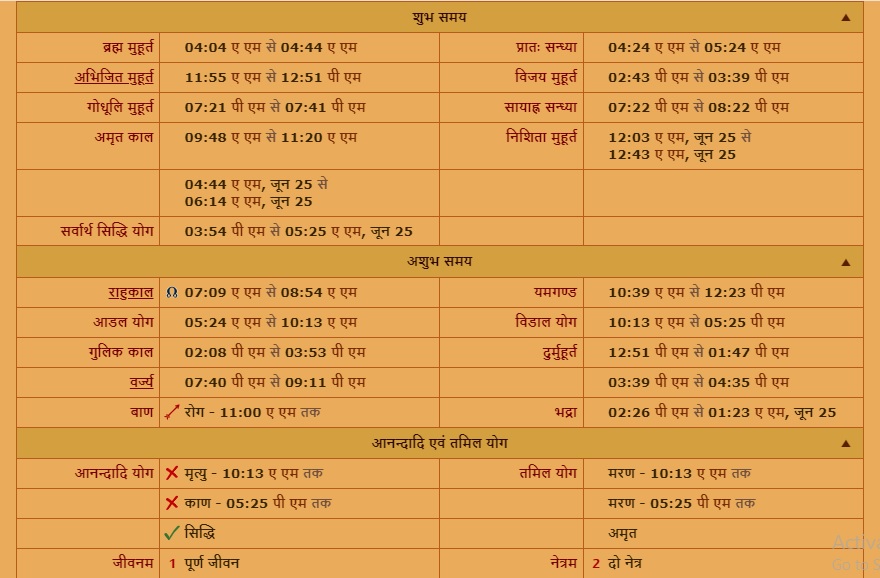 शुभ समय ▲
ब्रह्म मुहूर्त 04:04 ए एम से 04:44 ए एम प्रातः सन्ध्या 04:24 ए एम से 05:24 ए एम
अभिजित मुहूर्त 11:55 ए एम से 12:51 पी एम विजय मुहूर्त 02:43 पी एम से 03:39 पी एम
गोधूलि मुहूर्त 07:21 पी एम से 07:41 पी एम सायाह्न सन्ध्या 07:22 पी एम से 08:22 पी एम
अमृत काल 09:48 ए एम से 11:20 ए एम निशिता मुहूर्त 12:03 ए एम, जून 25 से
12:43 ए एम, जून 25
04:44 ए एम, जून 25 से
06:14 ए एम, जून 25
सर्वार्थ सिद्धि योग 03:54 पी एम से 05:25 ए एम, जून 25
अशुभ समय ▲
राहुकाल ☊ 07:09 ए एम से 08:54 ए एम यमगण्ड 10:39 ए एम से 12:23 पी एम
आडल योग 05:24 ए एम से 10:13 ए एम विडाल योग 10:13 ए एम से 05:25 पी एम
गुलिक काल 02:08 पी एम से 03:53 पी एम दुर्मुहूर्त 12:51 पी एम से 01:47 पी एम
वर्ज्य 07:40 पी एम से 09:11 पी एम 03:39 पी एम से 04:35 पी एम
बाण रोग - 11:00 ए एम तक भद्रा 02:26 पी एम से 01:23 ए एम, जून 25
आनन्दादि एवं तमिल योग ▲
आनन्दादि योग मृत्यु - 10:13 ए एम तक तमिल योग मरण - 10:13 ए एम तक
काण - 05:25 पी एम तक मरण - 05:25 पी एम तक
सिद्धि अमृत
जीवनम 1 पूर्ण जीवन नेत्रम 2 दो नेत्र